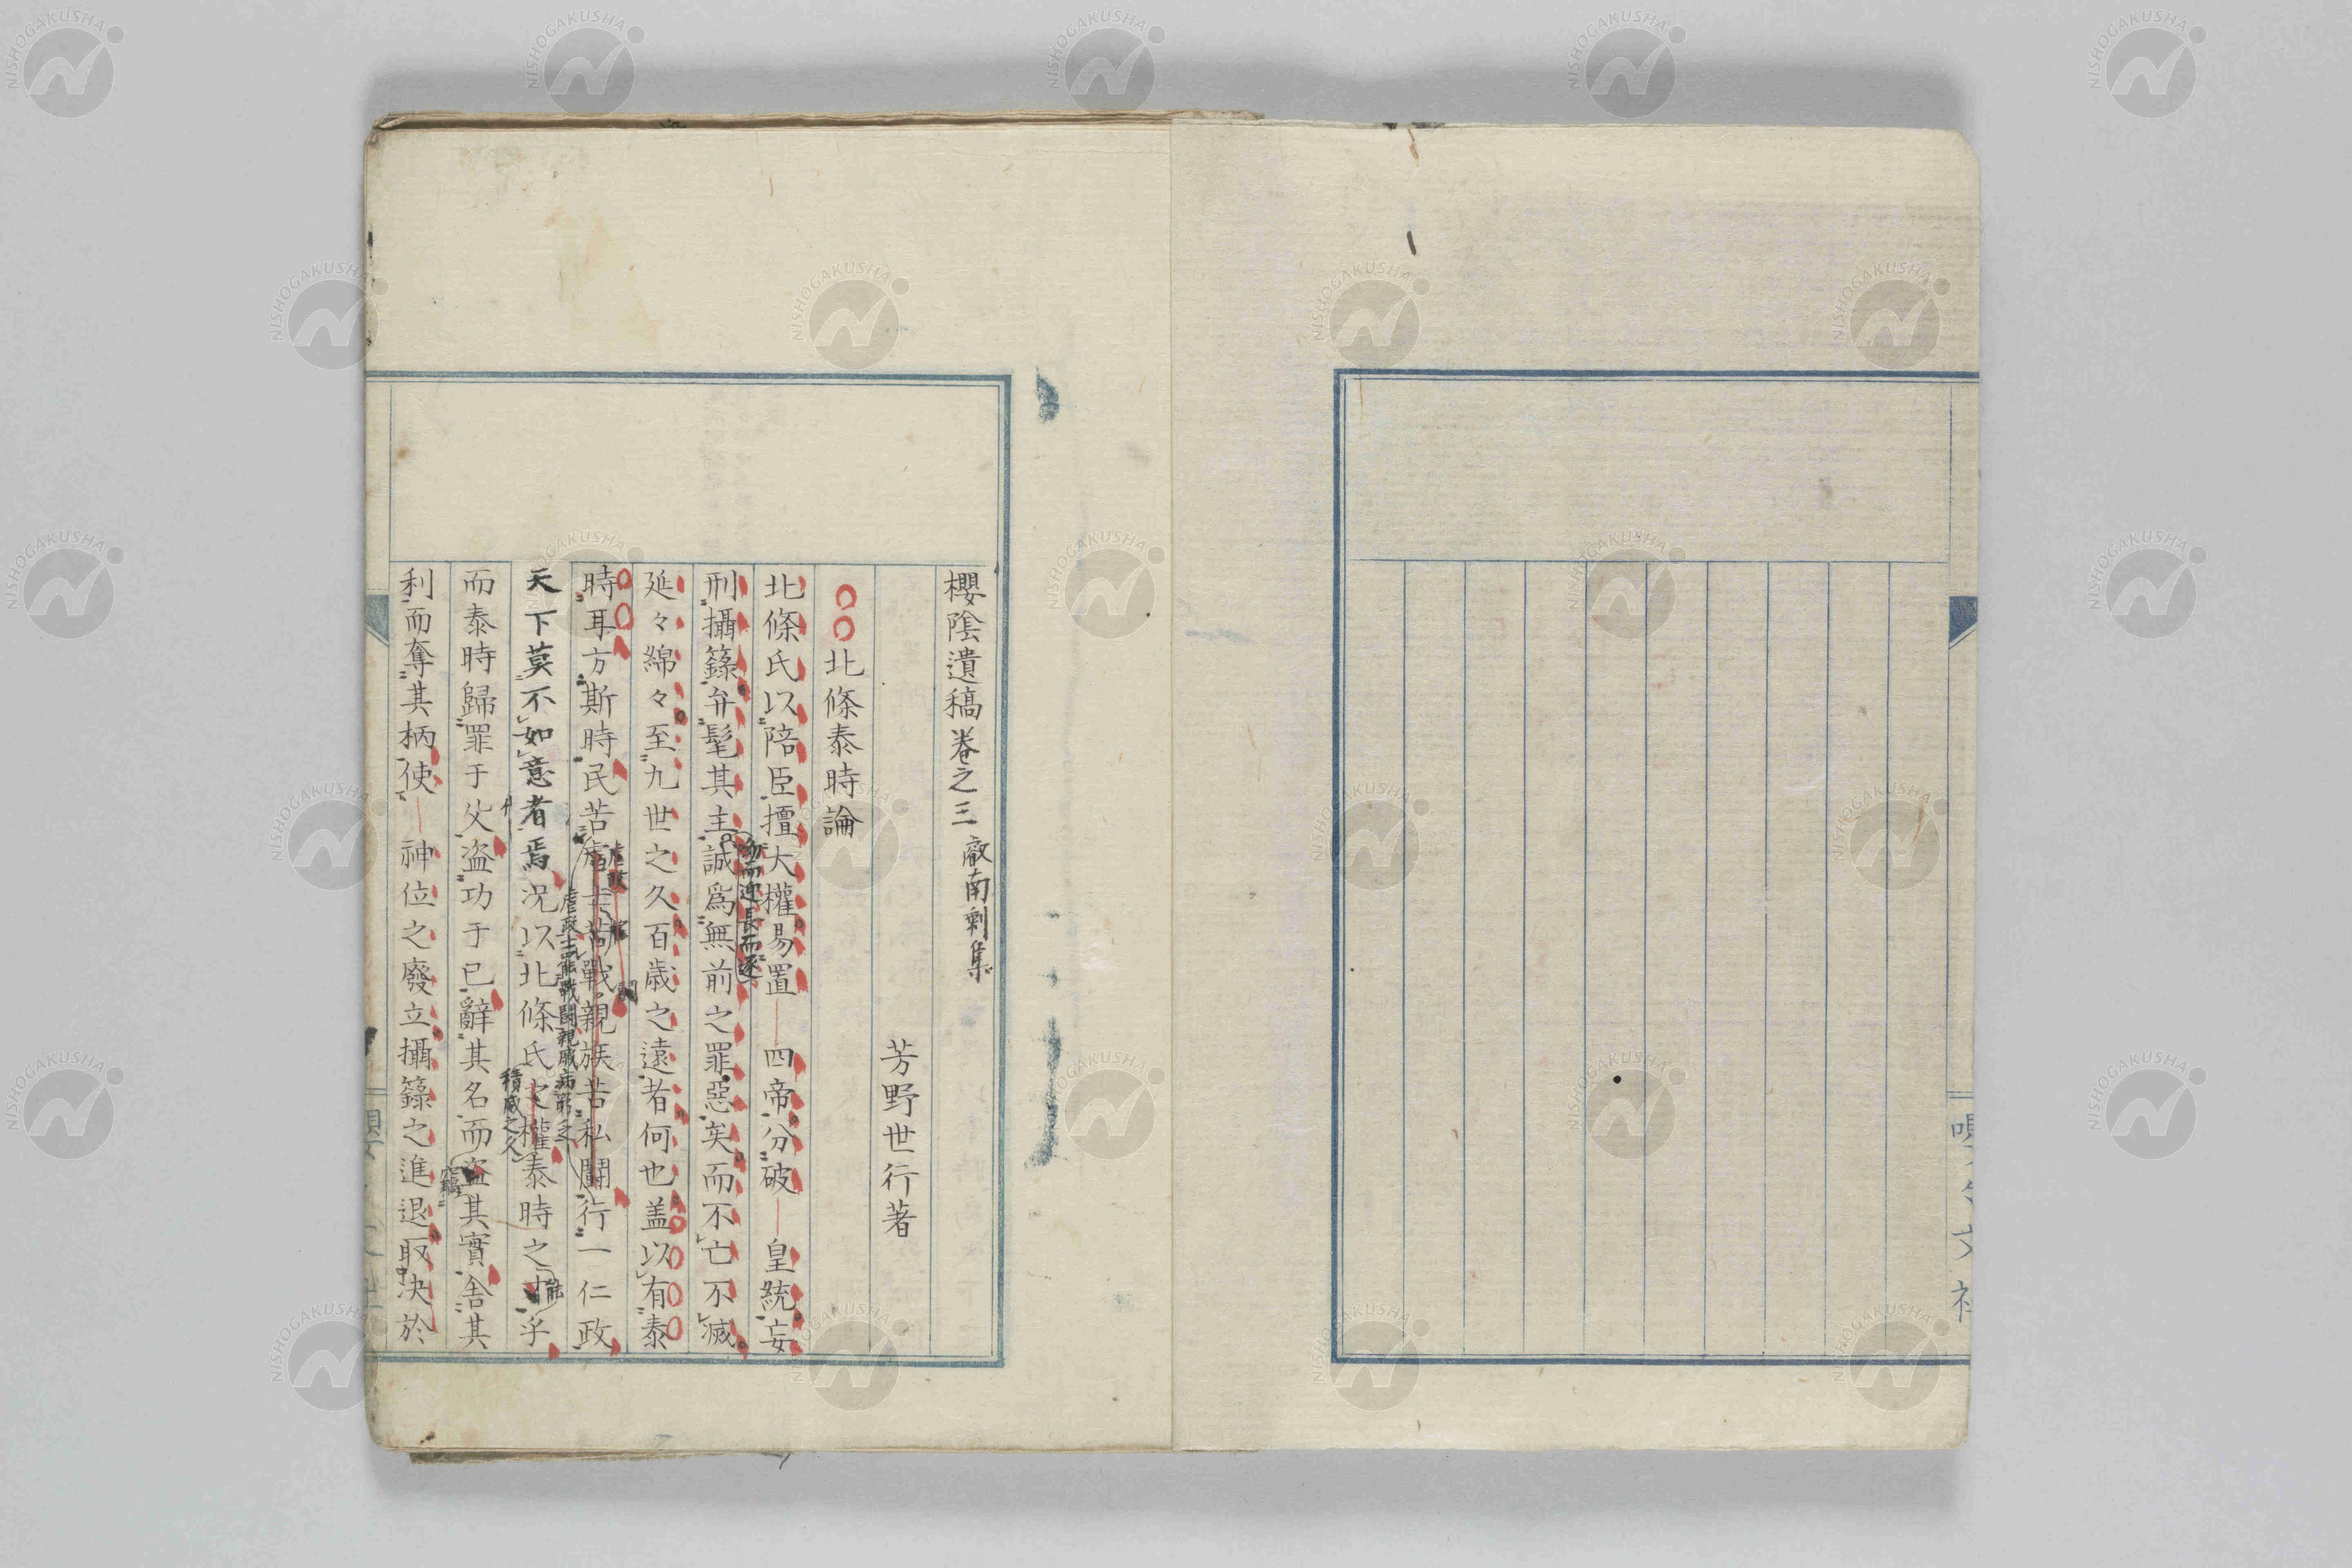 櫻陰遺稿卷之三 廠南剩集
芳野世行著
北條泰時論
北條氏以陪臣擅大權易置 四帝分破 皇統妄
幼而迎長而逐
刑攝籙弁髦其主誠爲無前之罪惡矣而不亡不滅
延々綿々至九世之久百歳之遠者何也盖以有泰
時耳方斯時民苦虐戰親族苦私鬪行一仁政
虐政士能戰鬪親戚病
天下莫不如意者焉况以北條氏之權泰時之才乎
積威之久
能
而泰時歸罪于父盗功于已辭其名而盗其實舎其
竊
利而奪其柄使 神位之廢立攝籙之進退取决於
NISHOGAKUSHA